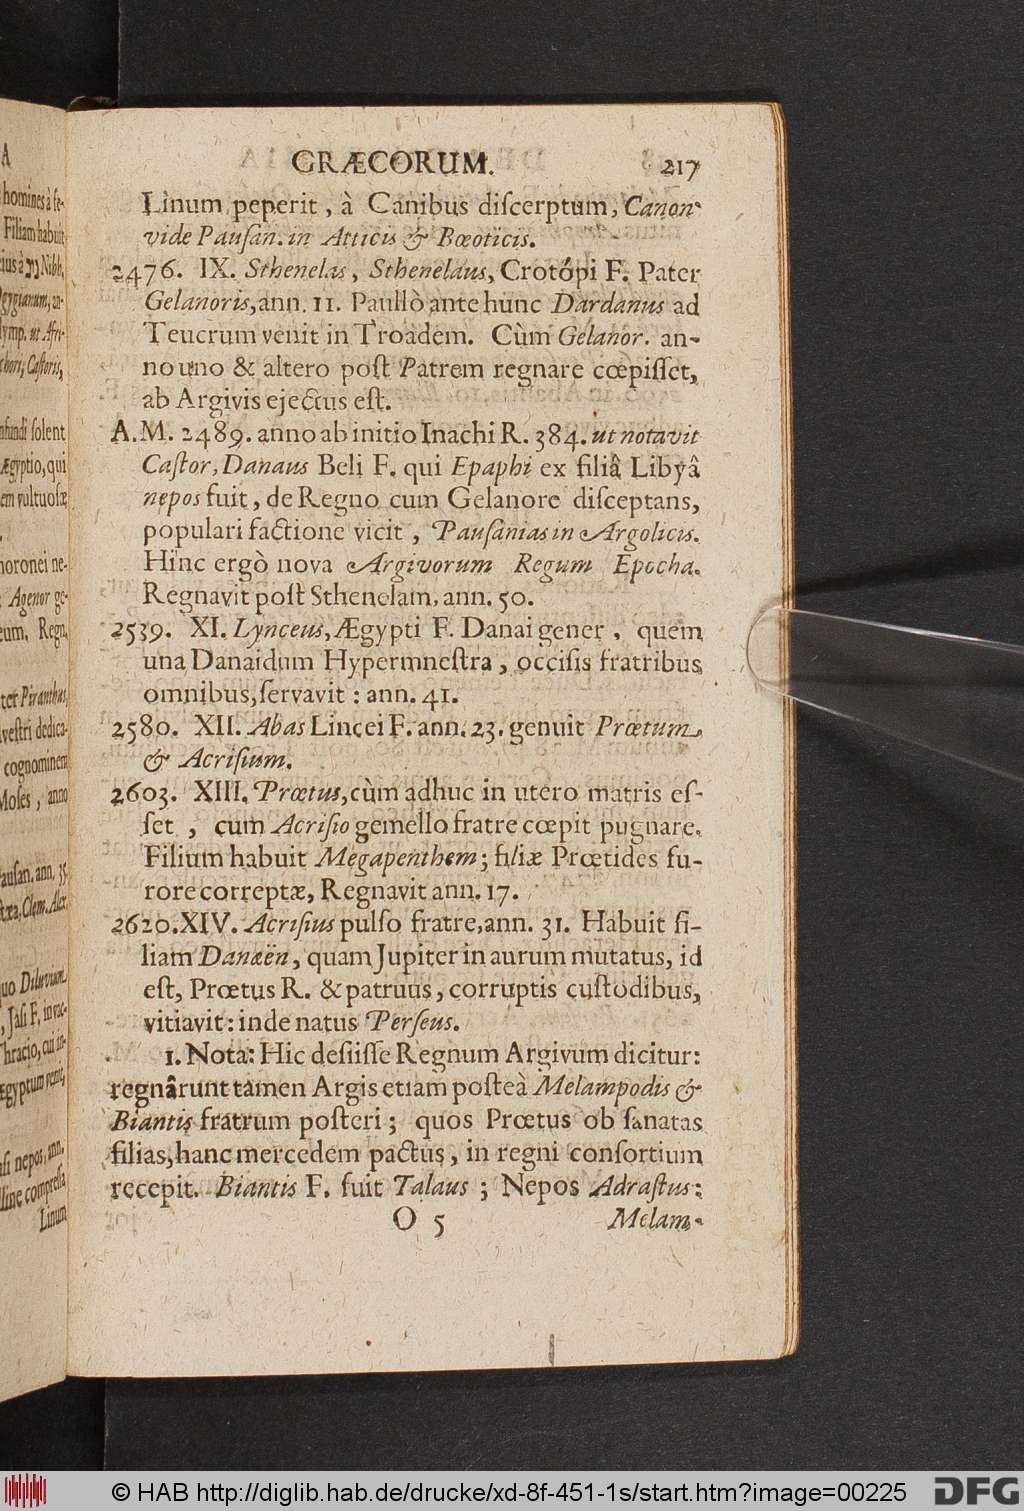 GRÆCORUM. 217
Linum peperit, à Canibus diſcerptum, Canon
vide Pauſan. in Atticis & Bœoticis.
2476. IX. Sthenelas, Sthenelaus, Crotópi F. Pater
Gelanoris, ann. 11. Paullò ante hunc Dardanus ad
Teucrum venit in Troadem. Cùm Gelanor. an-
no uno & altero poſt Patrem regnare cœpiſſet,
ab Argivis ejectus eſt.
A.M. 2489. anno ab initio Inachi R. 384. ut notavit
Caſtor, Danaus Beli F. qui Epaphi ex filiâ Libyâ
nepos fuit, de Regno cum Gelanore diſceptans,
populari factione vicit, Pauſanias in Argolicis.
Hinc ergò nova Argivorum Regum Epocha.
Regnavit poſt Sthenelam, ann. 50.
2539. XI. Lynceus, Ægypti F. Danai gener, quem
una Danaidum Hypermneſtra, occiſis fratribus
omnibus, ſervavit: ann. 41.
2580. XII. Abas Lincei F. ann. 23. genuit Prœtum
& Acriſium.
2603. XIII. Prœtus, cùm adhuc in utero matris eſ-
ſet, cum Acriſio gemello fratre cœpit pugnare.
Filium habuit Megapenthem; filiæ Prœtides fu-
rore correptæ, Regnavit ann. 17.
2620. XIV. Acriſius pulſo fratre, ann. 31. Habuit fi-
liam Danaën, quam Jupiter in aurum mutatus, id
eſt, Prœtus R. & patruus, corruptis cuſtodibus,
vitiavit: inde natus Perſeus.
1. Nota: Hic deſiiſſe Regnum Argivum dicitur:
regnârunt tamen Argis etiam poſteà Melampodis &
Biantis fratrum poſteri; quos Prœtus ob ſanatas
filias, hanc mercedem pactus, in regni conſortium
recepit. Biantis F. fuit Talaus; Nepos Adraſtus:
O 5 Melam-
© HAB http://diglib.hab.de/drucke/xd-8f-451-1s/start.htm?image=00225
DFG